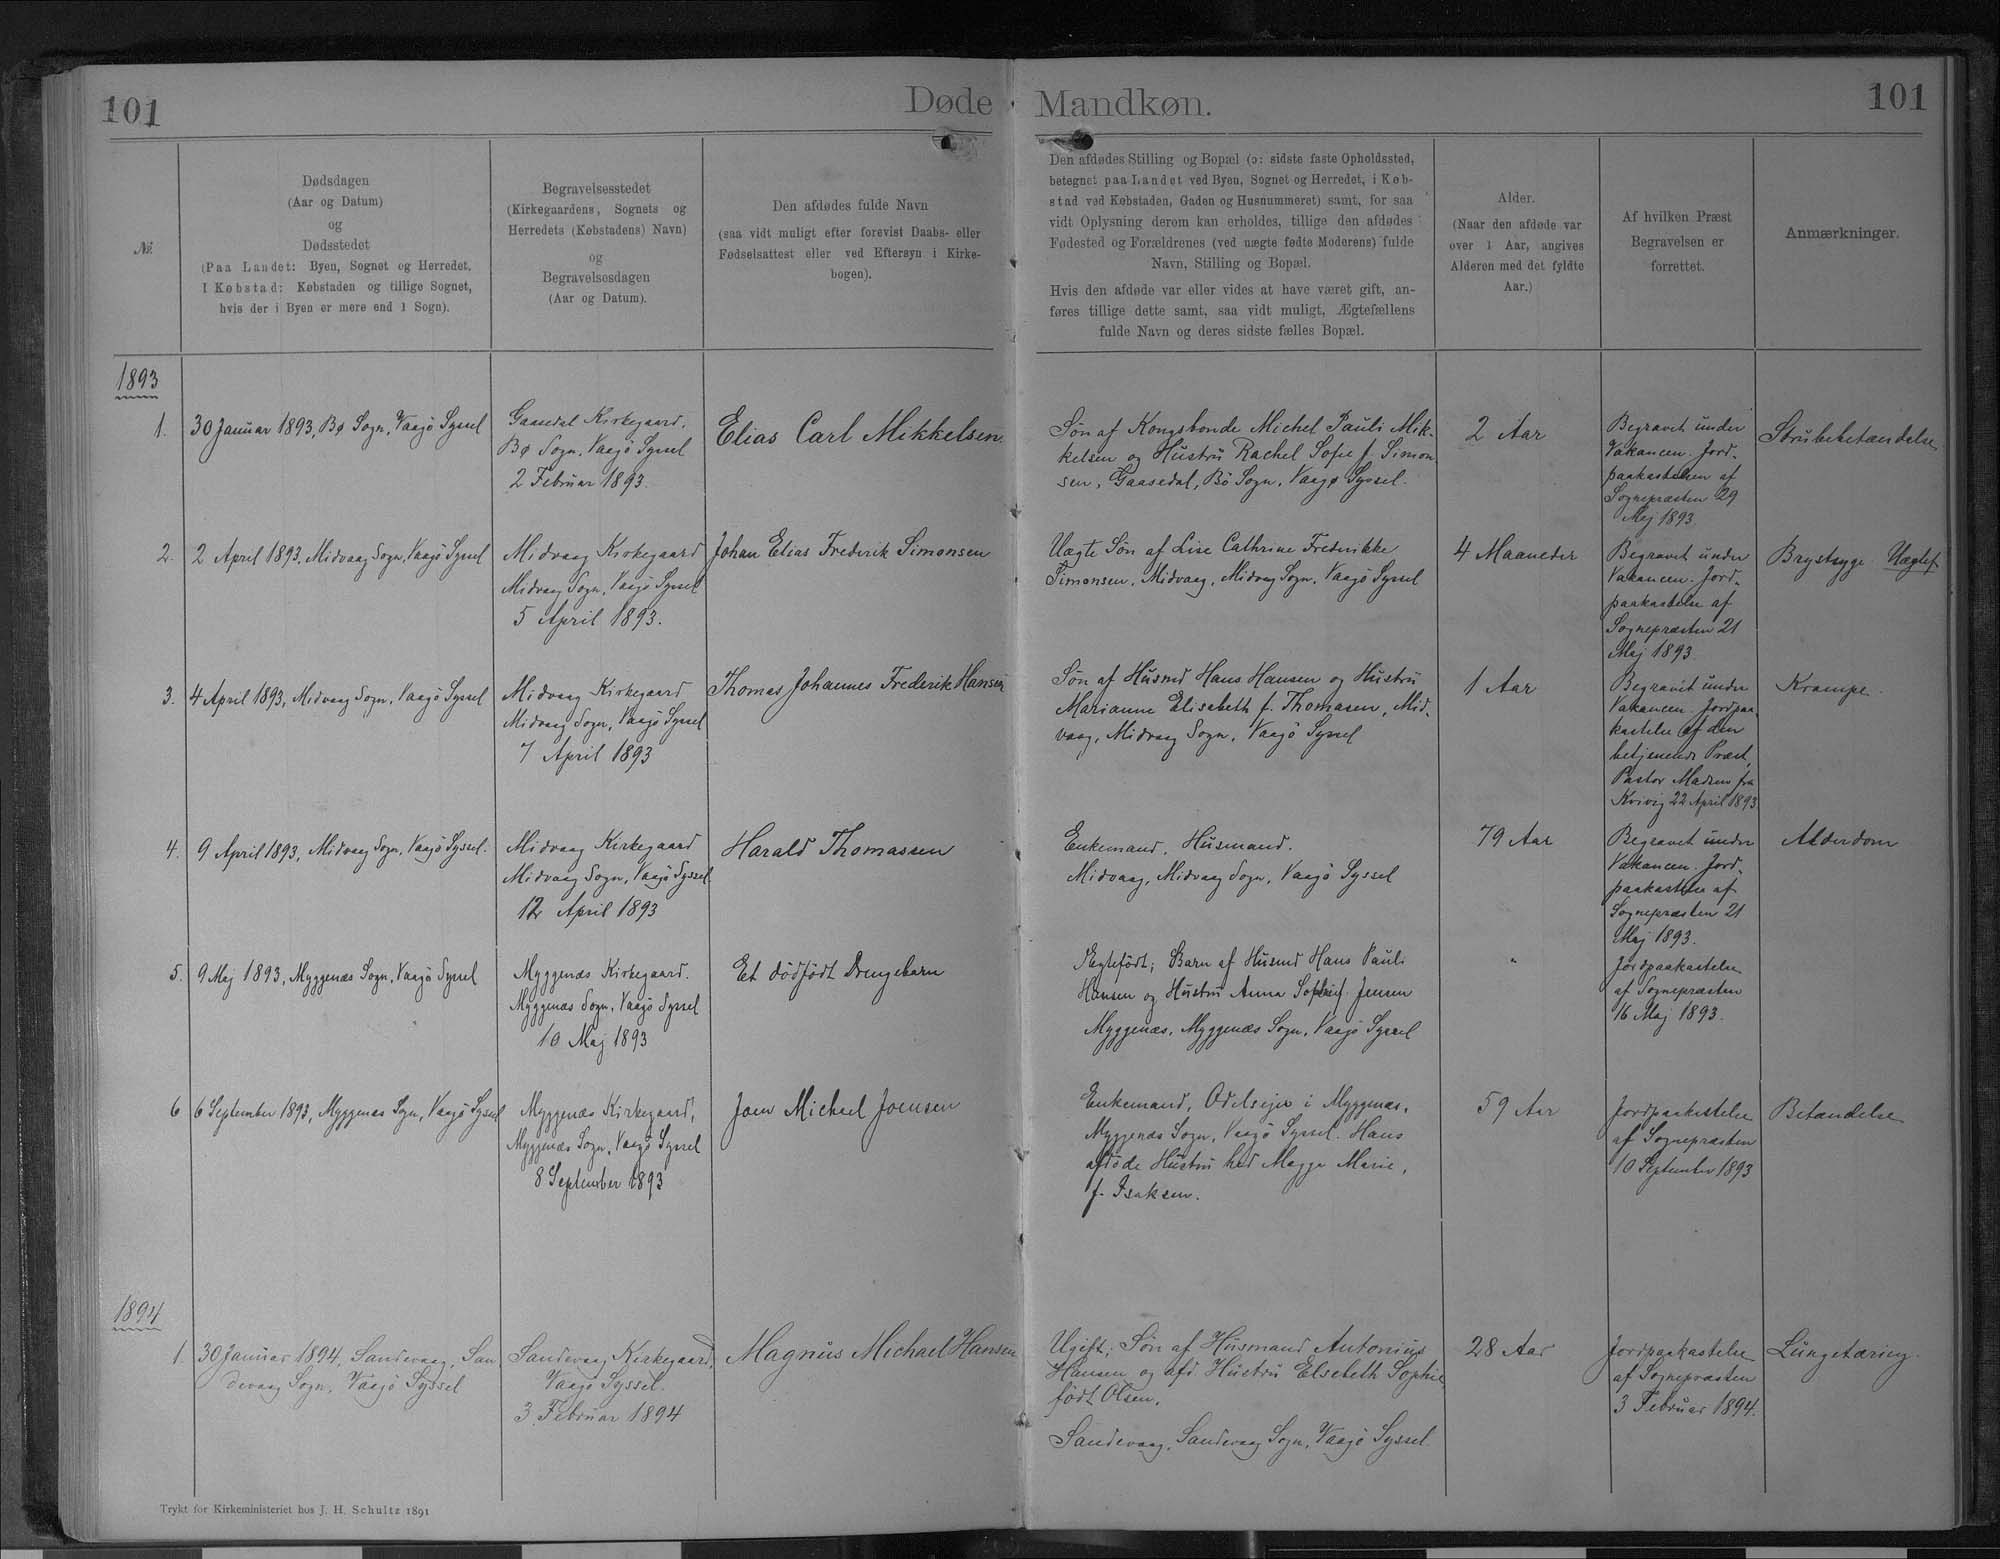 101
Døde
Mandkøn.
101
№
Dødsdagen
(Aar og Datum)
og
Dødsstedet
(Paa Landet: Byen, Sognet og Herredet,
I Købstad: Købstaden og tillige Sognet,
hvis der i Byen er mere end 1 Sogn).
Begravelsesstedet
(Kirkegaardens, Sognets og
Herredets (Købstadens) Navn)
og
Begravelsesdagen
(Aar og Datum).
Den afdødes fulde Navn
(saa vidt muligt efter forevist Daabs- eller
Fødselsattest eller ved Eftersyn i Kirke-
bogen).
Den afdødes Stilling og Bopæl (ɔ: sidste faste Opholdssted,
betegnet paa Landet ved Byen, Sognet og Herredet, i Køb-
stad ved Købstaden, Gaden og Husnummeret) samt, for saa
vidt Oplysning derom kan erholdes, tillige den afdødes
Fødested og Forældrenes (ved uægte fødte Moderens) fulde
Navn, Stilling og Bopæl.
Hvis den afdøde var eller vides at have været gift, an-
føres tillige dette samt, saa vidt muligt, Ægtefællens
fulde Navn og deres sidste fælles Bopæl.
Alder.
(Naar den afdøde var
over 1 Aar, angives
Alderen med det fyldte
Aar.)
Af hvilken Præst
Begravelsen er
forrettet.
Anmærkninger.
1893
1.
30 Januar 1893, Bø Sogn, Vaagö Syssel
Gaasedal Kirkegaard,
Bø Sogn, Vaagö Syssel
2 Februar 1893.
Elias Carl Mikkelsen
Søn af Kongsbonde Michel Pauli Mik-
kelsen og Hustru Rachel Sofie f. Simon
sen, Gaasedal, Bö Sogn, Vaagø Syssel.
2 Aar
Begravet under
Vakancen. Jord-
paakastelsen af
Sognepræsten 29
Maj 1893.
Strubebetændelse
2.
2 April 1893, Midvaag Sogn, Vaagö Syssel
Midvaag Kirkegaard
Midvaag Sogn, Vaagö Syssel
5 April 1893.
Johan Elias Frederik Simonsen
Uægte Søn af Lise Cathrine Frederikke
Simonsen, Midvaag, Midvaag Sogn, Vaagö Syssel
4 Maaneder
Begravet under
Vakancen. Jord-
paakastelse af
Sognepræsten 21
Maj 1893.
Brystsyge. Uægtef.
3.
4 April 1893, Midvaag Sogn, Vaagö Syssel
Midvaag Kirkegaard
Midvaag Sogn, Vaagö Syssel
7 April 1893
Thomas Johannes Frederik Hansen
Søn af Husmd Hans Hansen og Hustru
Marianne Elisabeth f. Thomasen, Mid-
vaag, Midvaag Sogn, Vaagö Syssel
1 Aar
Begravet under
Vakancen. Jordpaa-
kastelse af den
betjenende Præst,
Pastor Madsen fra
Kvivig 22 April 1893
Krampe.
4.
9 April 1893, Midvaag Sogn, Vaagö Syssel.
Midvaag Kirkegaard
Midvaag Sogn, Vaagö Syssel
12 April 1893
Harald Thomassen
Enkemand, Husmand.
Midvaag, Midvaag Sogn, Vaagö Syssel
79 Aar
Begravet under
Vakancen. Jord-
paakastelse af
Sognepræsten 21
Maj 1893.
Alderdom
5.
9 Maj 1893, Myggenæs Sogn, Vaagö Syssel
Myggenæs Kirkegaard.
Myggenæs Sogn, Vaagö Syssel
10 Maj 1893
Et dödfödt Drengebarn
Ægtefödt; Barn af Husmd Hans Pauli
Hansen og Hustru Anna Sophie f. Jensen
Myggenæs, Myggenæs Sogn, Vaagö Syssel
"
Jordpaakastelse
af Sognepræsten
16 Maj 1893.
6
6 September 1893, Myggenæs Sogn, Vaagö Syssel
Myggenæs Kirkegaard,
Myggenæs Sogn, Vaagö Syssel
8 September 1893
Joen Michael Joensen
Enkemand, Odelsejer i Myggenæs,
Myggenæs Sogn, Vaagö Syssel. Hans
afdöde Hustru hed Magga Marie,
f. Isaksen.
59 Aar
Jordpaakastelse
af Sognepræsten
10 September 1893
Betændelse
1894
1.
30 Januar 1894, Sandevaag, San
devaag Sogn, Vaagö Syssel
Sandevaag Kirkegaard,
Vaagö Syssel.
3 Februar 1894
Magnus Michael Hansen
Ugift; Søn af Husmand Antonius
Hansen og afd. Hustru Elsebeth Sophie
født Olsen,
Sandevaag, Sandevaag Sogn, Vaagö Syssel.
28 Aar
Jordpaakastelse
af Sognepræsten
3 Februar 1894.
Lungetæring.
Trykt for Kirkeministeriet hos J. H. Schultz 1891